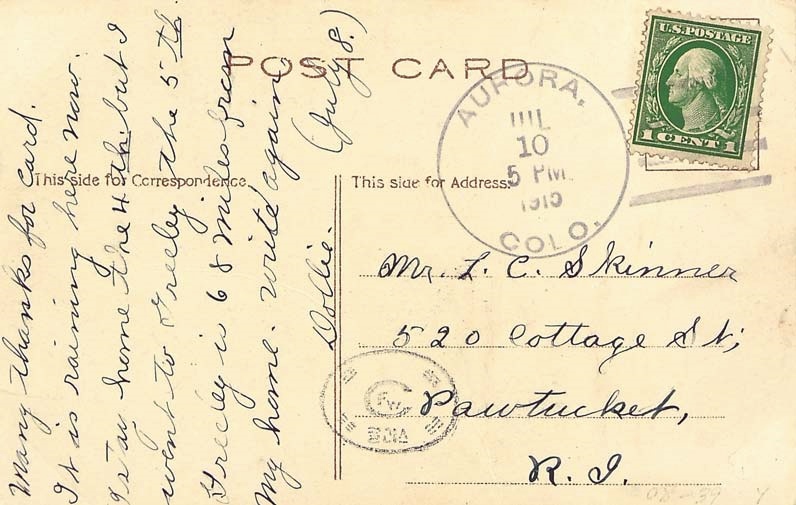 POST CARD
U.S. POSTAGE
1 CENT 1
AURORA,
JUL
10
5 PM
1915
COLO.
This side for Correspondence.
This side for Address.
Many thanks for card.
It is raining here now.
home the 4th but I
went to Greeley the 5th
Greeley is 68 miles from
My home. Write again
Dollie. (July 8.)
Mr. L. C. Skinner
520 Cottage St;
Pawtucket,
R. I.